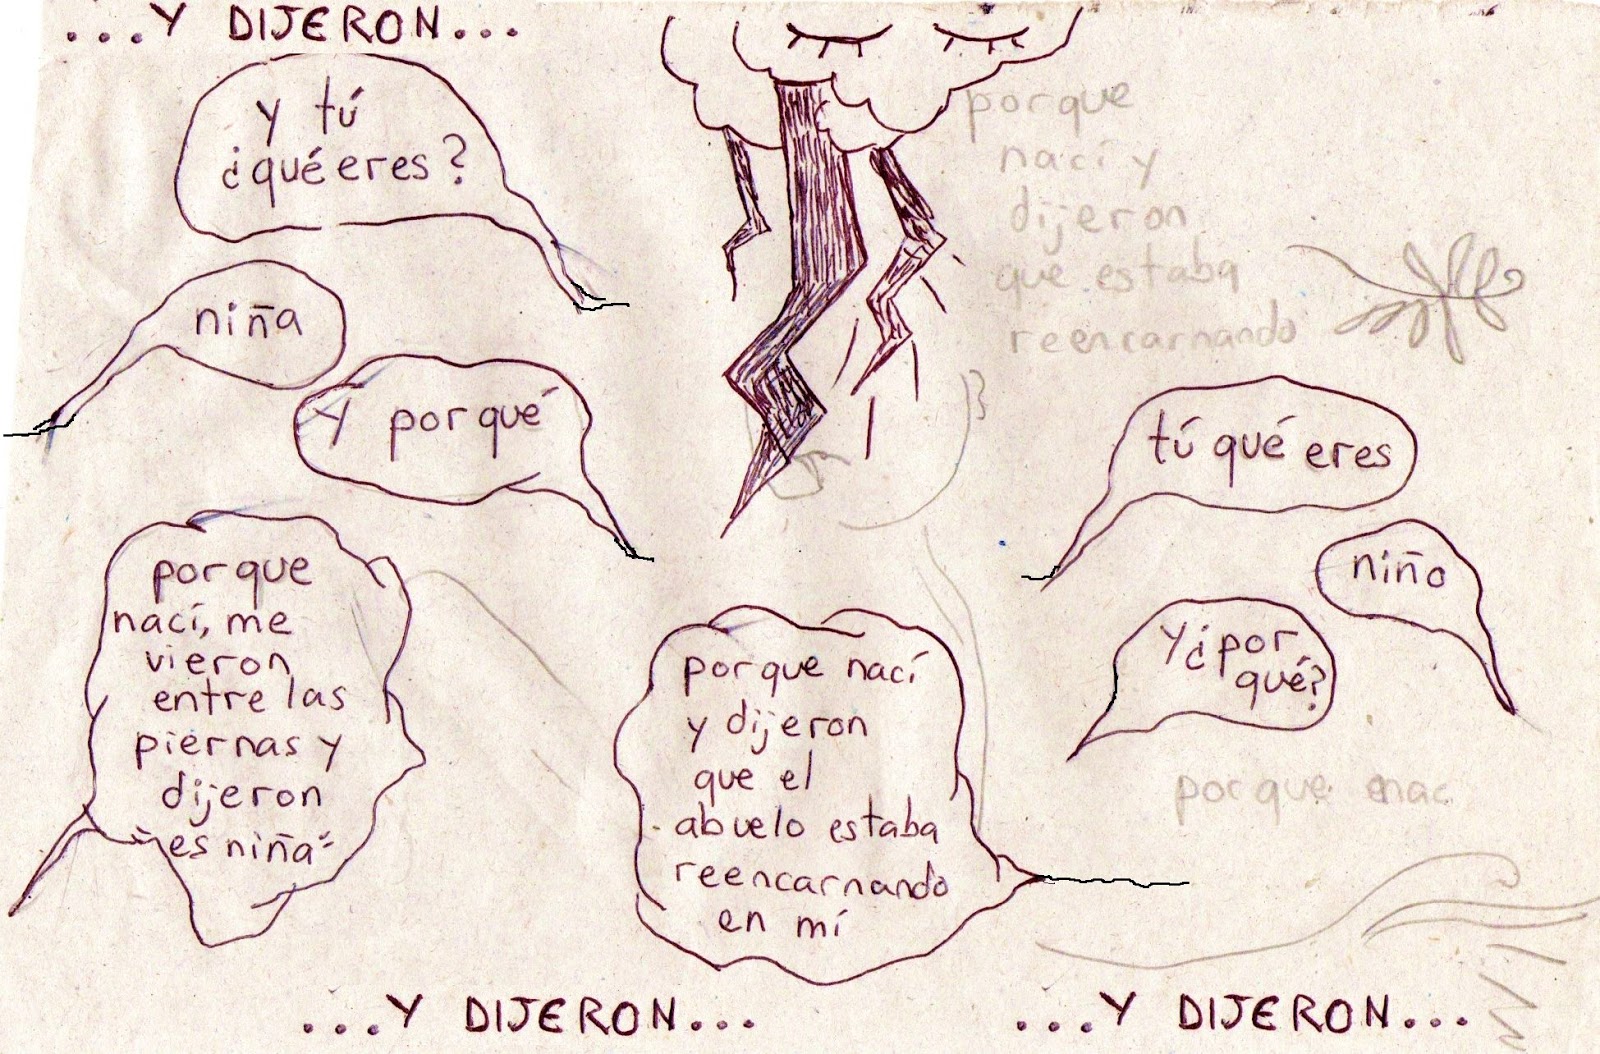 ...Y DIJERON...
y tú
¿qué eres?
niña
Y por qué
porque
nací, me
vieron
entre las
piernas y
dijeron
"es niña"
porque
nací y
dijeron
que estaba
reencarnando
tú qué eres
niño
Y ¿por
qué?
porque nací
y dijeron
que el
abuelo estaba
reencarnando
en mí
porque nac
...Y DIJERON...
...Y DIJERON...